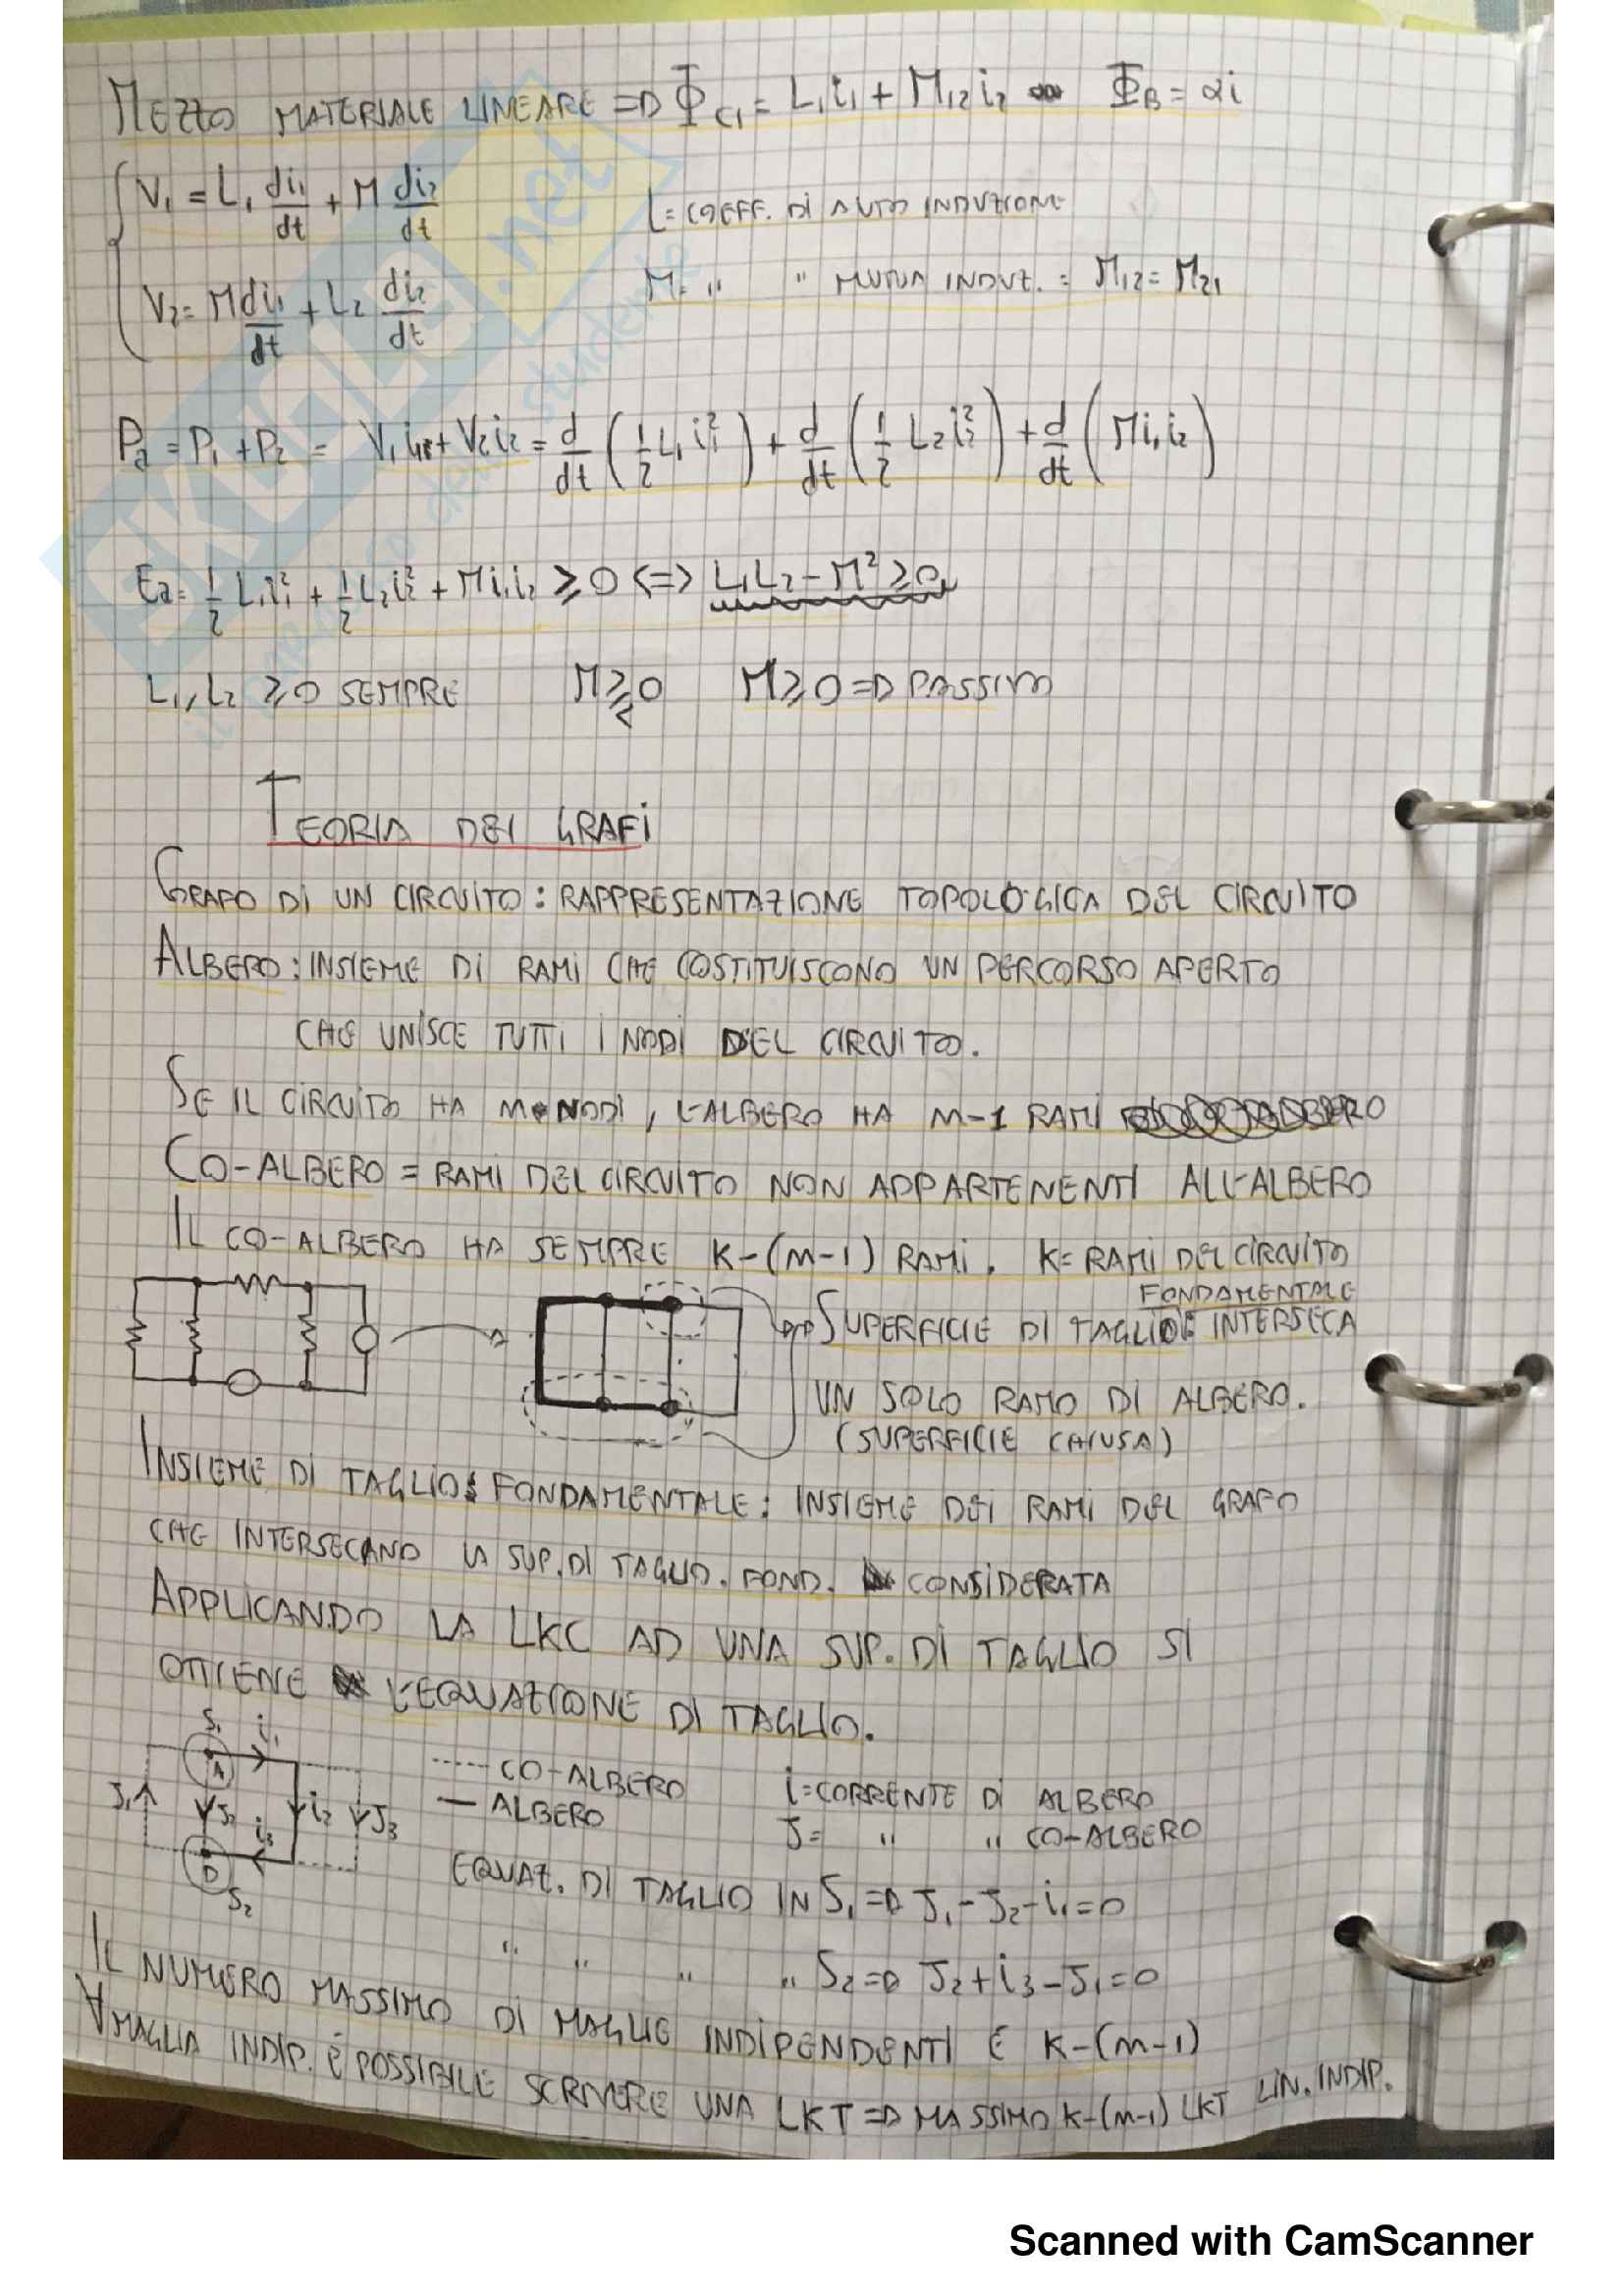 MEZZO MATERIALE LINEARE => Φ_C1 = L₁i₁ + M₁₂i₂ Φ_B = αi
V₁ = L₁ di₁/dt + M di₂/dt
L = COEFF. DI AUTO INDUZIONE
V₂ = M di₁/dt + L₂ di₂/dt
M = " " MUTUA INDUZ. = M₁₂ = M₂₁
Pa = P₁ + P₂ = V₁i₁ + V₂i₂ = d/dt (1/2 L₁i₁²) + d/dt (1/2 L₂i₂²) + d/dt (Mi₁i₂)
Ea = 1/2 L₁i₁² + 1/2 L₂i₂² + Mi₁i₂ ≥ 0 <=> L₁L₂ - M² ≥ 0
L₁, L₂ ≥ 0 SEMPRE M ⋛ 0 M ≥ 0 => PASSIVO
TEORIA DEI GRAFI
GRAFO DI UN CIRCUITO: RAPPRESENTAZIONE TOPOLOGICA DEL CIRCUITO
ALBERO: INSIEME DI RAMI CHE COSTITUISCONO UN PERCORSO APERTO
CHE UNISCE TUTTI I NODI DEL CIRCUITO.
SE IL CIRCUITO HA M NODI, L'ALBERO HA M-1 RAMI
CO-ALBERO = RAMI DEL CIRCUITO NON APPARTENENTI ALL'ALBERO
IL CO-ALBERO HA SEMPRE K-(M-1) RAMI. K= RAMI DEL CIRCUITO
FONDAMENTALE
SUPERFICIE DI TAGLIO: INTERSECA
UN SOLO RAMO DI ALBERO.
(SUPERFICIE CHIUSA)
INSIEME DI TAGLIO FONDAMENTALE: INSIEME DEI RAMI DEL GRAFO
CHE INTERSECANO LA SUP. DI TAGLIO. FOND. CONSIDERATA
APPLICANDO LA LKC AD UNA SUP. DI TAGLIO SI
OTTIENE L'EQUAZIONE DI TAGLIO.
S₁ i₁
A
J₁ J₂ i₃ i₂ J₃
D
S₂
CO-ALBERO
ALBERO
i = CORRENTE DI ALBERO
J = " " CO-ALBERO
EQUAZ. DI TAGLIO IN S₁ => J₁ - J₂ - i₁ = 0
" " " " S₂ => J₂ + i₃ - J₁ = 0
IL NUMERO MASSIMO DI MAGLIE INDIPENDENTI È K-(M-1)
∀ MAGLIA INDIP. È POSSIBILE SCRIVERE UNA LKT => MASSIMO K-(M-1) LKT LIN. INDIP.
SKUOLA.net
Scanned with CamScanner